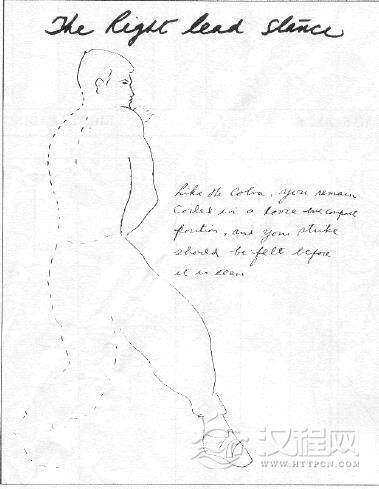 The Right lead stance
Like the Cobra, you remain
Coiled in a loose but compact
position, and your strike
should be felt before
it is seen
汉程网
WWW.HTTPCN.COM